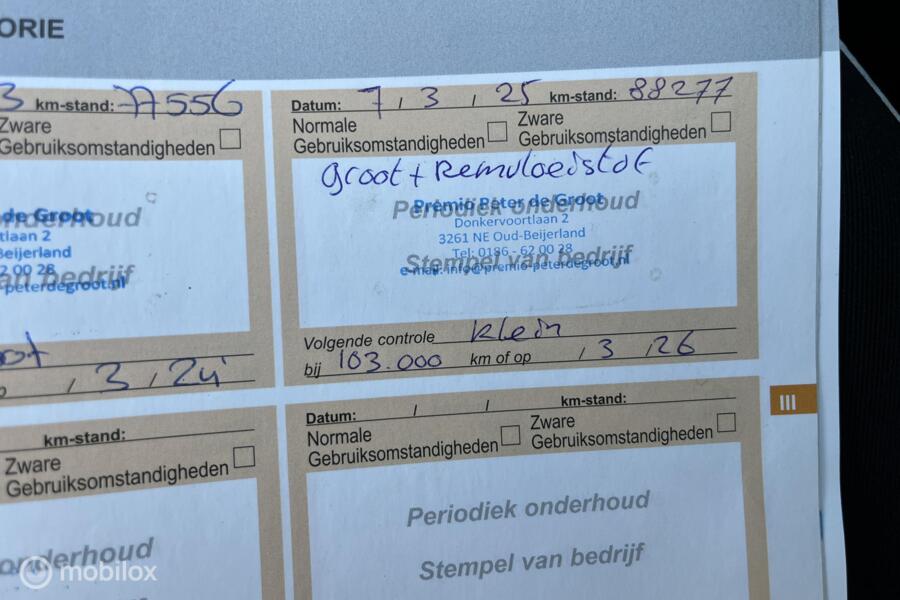 ORIE
3 km-stand: 77556
Zware
Gebruiksomstandigheden
de Groot
onderhoud
tlaan 2
Beijerland
2 00 28
an bedrijf
peterdegroot.nl
, 3 , 24
Datum: 7 , 3 , 25 km-stand: 88277
Normale
Gebruiksomstandigheden
Zware
Gebruiksomstandigheden
Groot + Remvloeistof
Premio Peter de Groot
Periodiek onderhoud
Donkervoortlaan 2
3261 NE Oud-Beijerland
Tel: 0186 - 62 00 28
Stempel van bedrijf
e-mail: info@premio-peterdegroot.nl
Volgende controle Klein
bij 103.000 km of op , 3 , 26
III
km-stand:
Zware
Gebruiksomstandigheden
onderhoud
Datum: / / km-stand:
Normale
Gebruiksomstandigheden
Zware
Gebruiksomstandigheden
Periodiek onderhoud
Stempel van bedrijf
mobilox